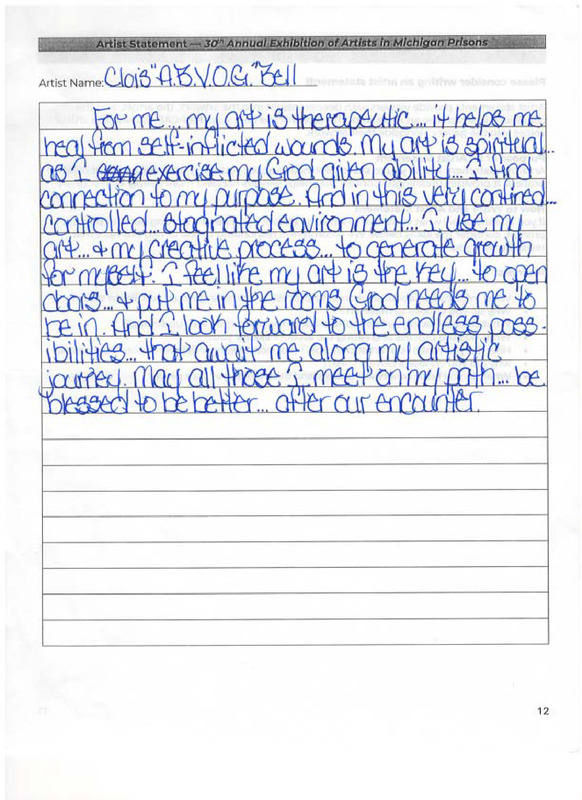 Artist Statement — 30th Annual Exhibition of Artists in Michigan Prisons
Artist Name: Clois "A.B.V.O.G." Bell
For me... my art is therapeutic... it helps me
heal from self-inflicted wounds. My art is spiritual...
as I exercise my God given ability... I find
connection to my purpose. And in this very confined...
controlled... stagnated environment... I use my
art... & my creative process... to generate growth
for myself. I feel like my art is the key... to open
doors... & put me in the rooms God needs me to
be in. And I look forward to the endless poss-
ibilities... that await me along my artistic
journey. May all those I meet on my path... be
blessed to be better... after our encounter.
12